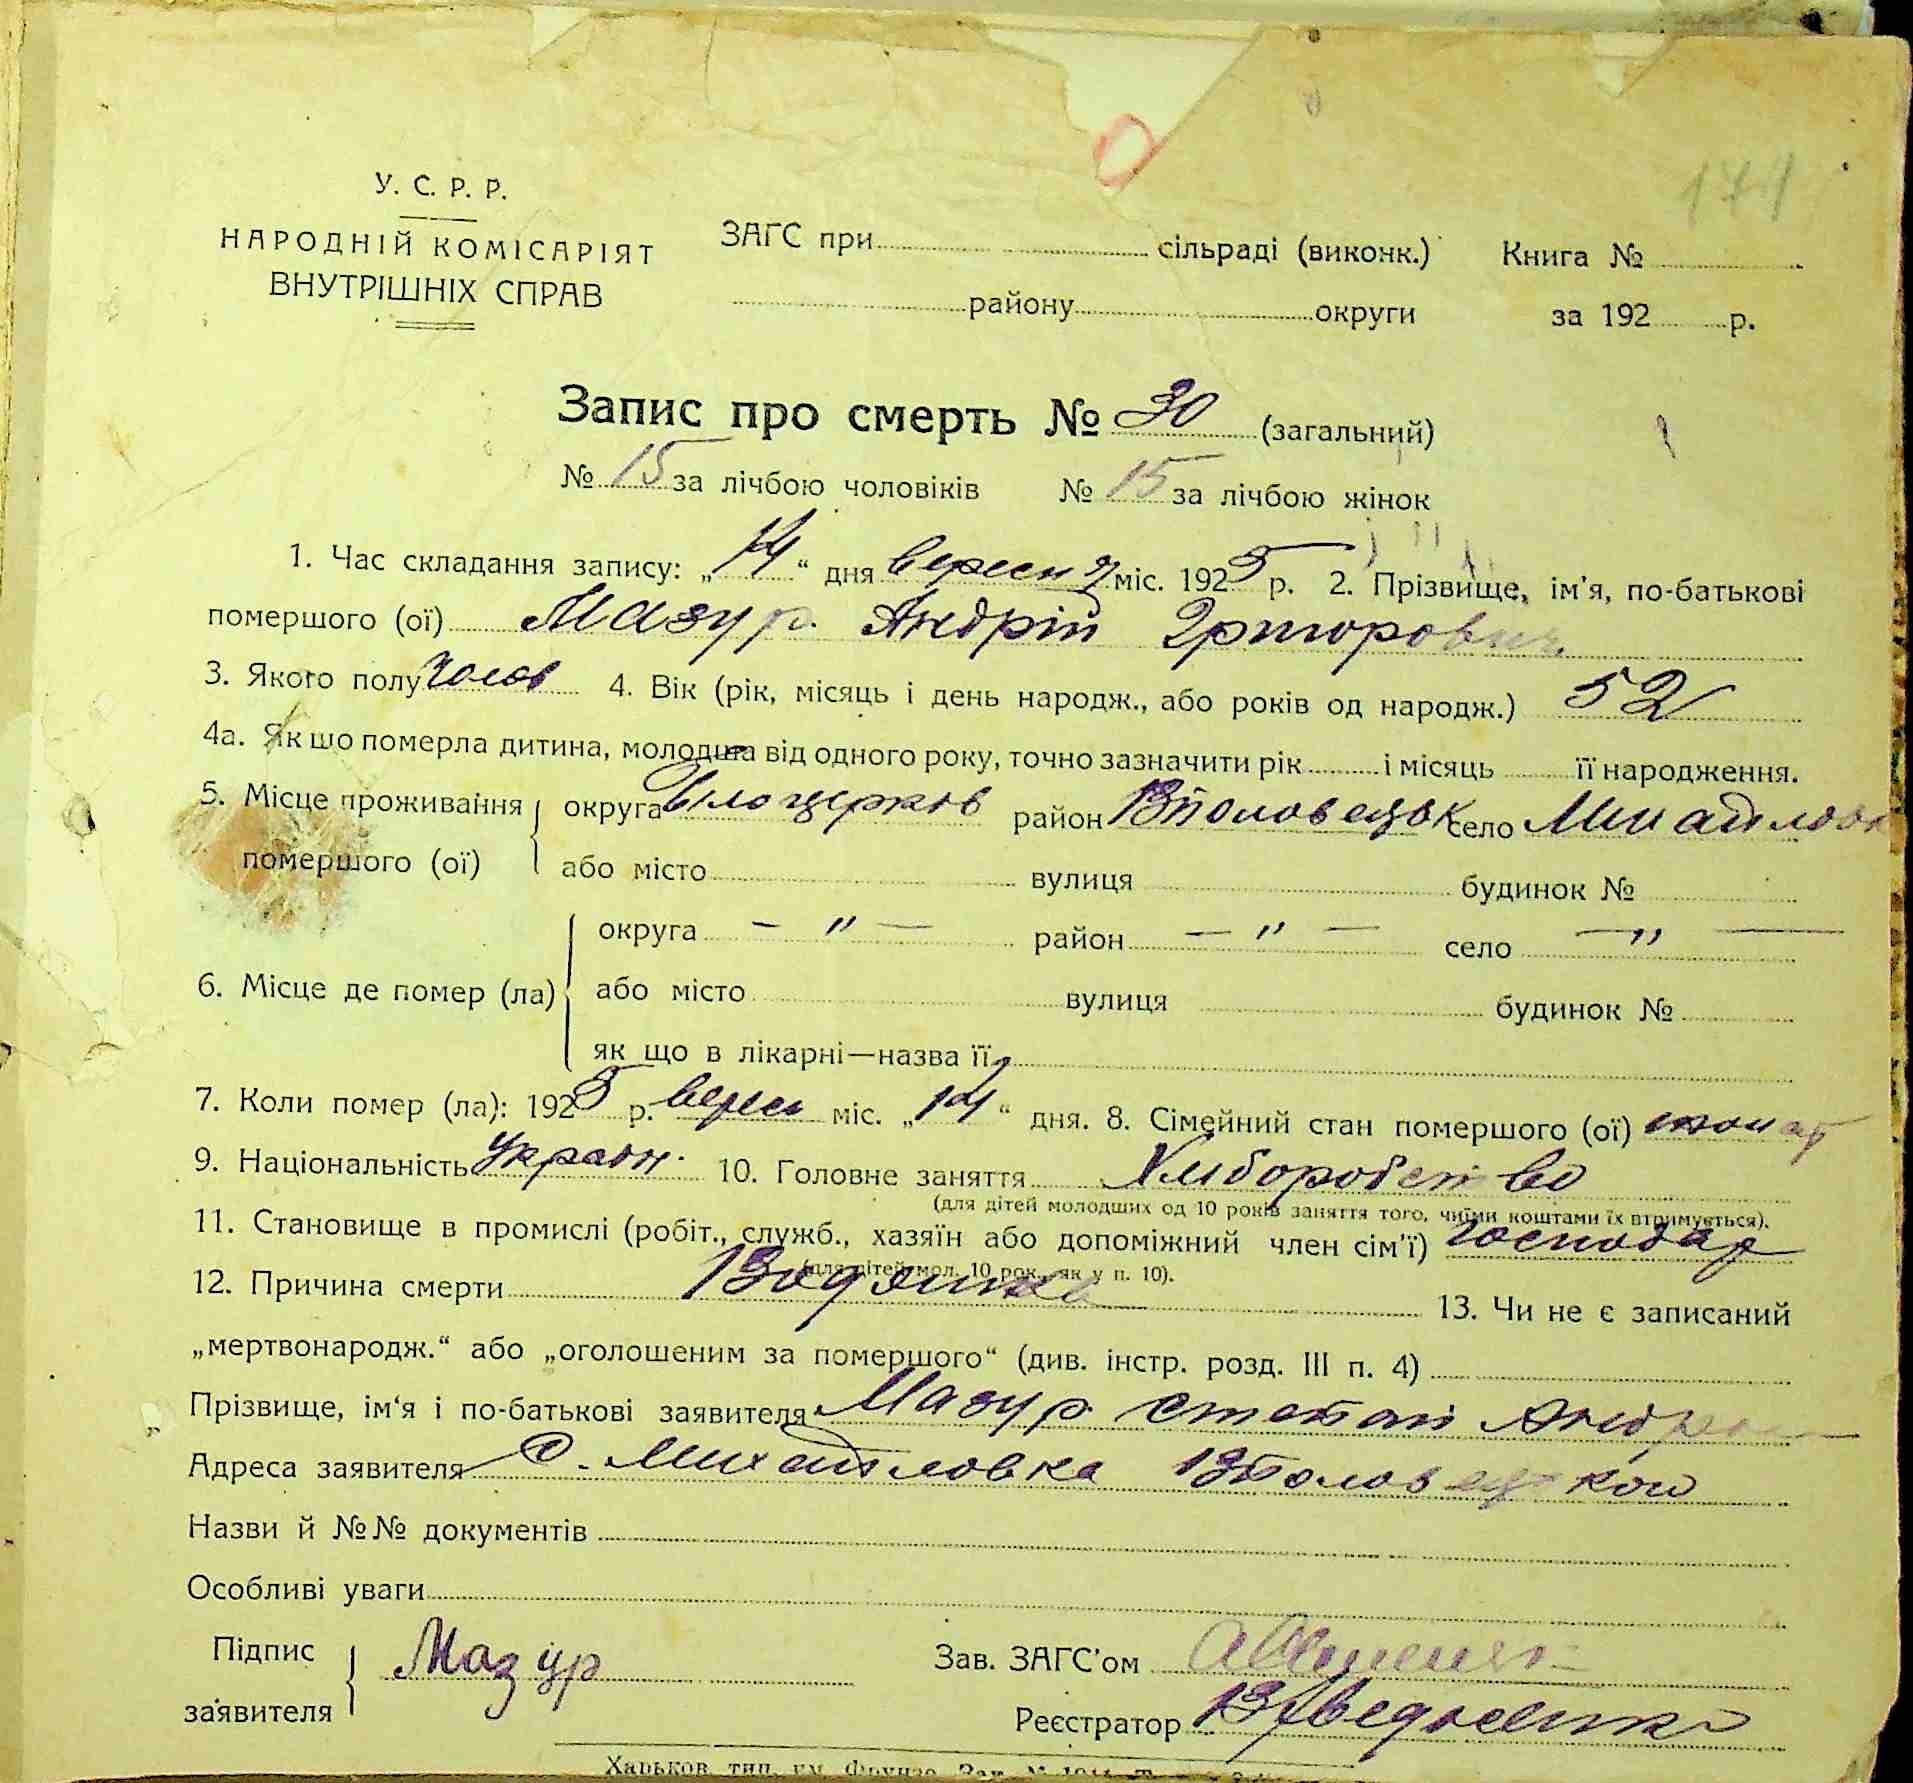 171
У. С. Р. Р.
НАРОДНІЙ КОМІСАРІЯТ
ВНУТРІШНІХ СПРАВ
ЗАГС при сільраді (виконк.) Книга №
району округи за 192 р.
Запис про смерть № 30 (загальний)
№ 15 за лічбою чоловіків № 15 за лічбою жінок
1. Час складання запису: „14“ дня вересня міс. 1925 р. 2. Прізвище, ім'я, по-батькові
помершого (ої) Мазур Андрій Григорович
3. Якого полу чолов 4. Вік (рік, місяць і день народж., або років од народж.) 52
4а. Як шо померла дитина, молодша від одного року, точно зазначити рік і місяць її народження.
5. Місце проживання помершого (ої) округа Білоцерков район Вполовецьк село Михайловк
або місто вулиця будинок №
6. Місце де помер (ла) округа — " — район — " — село — " —
або місто вулиця будинок №
як що в лікарні—назва її
7. Коли помер (ла): 1925 р. верес міс. „14“ дня. 8. Сімейний стан помершого (ої)
9. Національність україн. 10. Головне заняття Хліборобство
(для дітей молодших од 10 років заняття того, чиїми коштами їх втримується).
11. Становище в промислі (робіт., служб., хазяїн або допоміжний член сім'ї) господар
(для дітей мол. 10 рок. як у п. 10).
12. Причина смерти Водянка 13. Чи не є записаний
„мертвонародж.“ або „оголошеним за помершого“ (див. інстр. розд. III п. 4)
Прізвище, ім'я і по-батькові заявителя Мазур Степан
Адреса заявителя с. Михайловка
Назви й №№ документів
Особливі уваги
Підпис заявителя Мазур Зав. ЗАГС'ом
Реєстратор
Харьков тип. им. Фрунзе